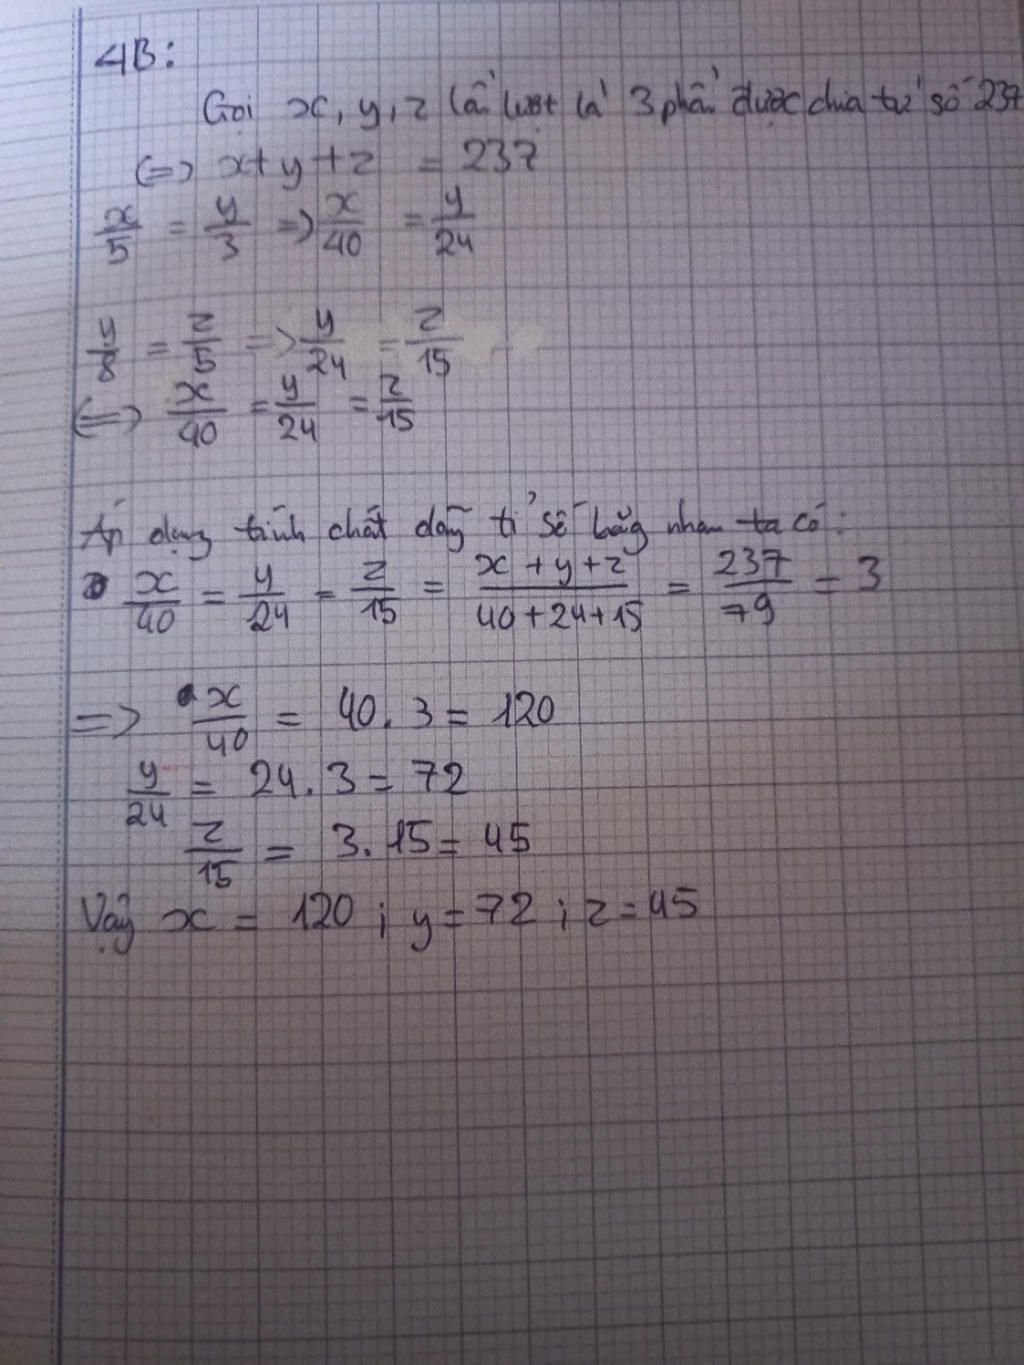 4B:
Gọi x, y, z lần lượt là 3 phần được chia từ số 237
(=> x + y + z = 237
x/5 = y/3 => x/40 = y/24
y/8 = z/5 => y/24 = z/15
(=> x/40 = y/24 = z/15
Áp dụng tính chất dãy tỉ số bằng nhau ta có:
x/40 = y/24 = z/15 = x + y + z/40 + 24 + 15 = 237/79 = 3
=> x/40 = 40 . 3 = 120
y/24 = 24 . 3 = 72
z/15 = 3 . 15 = 45
Vậy x = 120 ; y = 72 ; z = 45